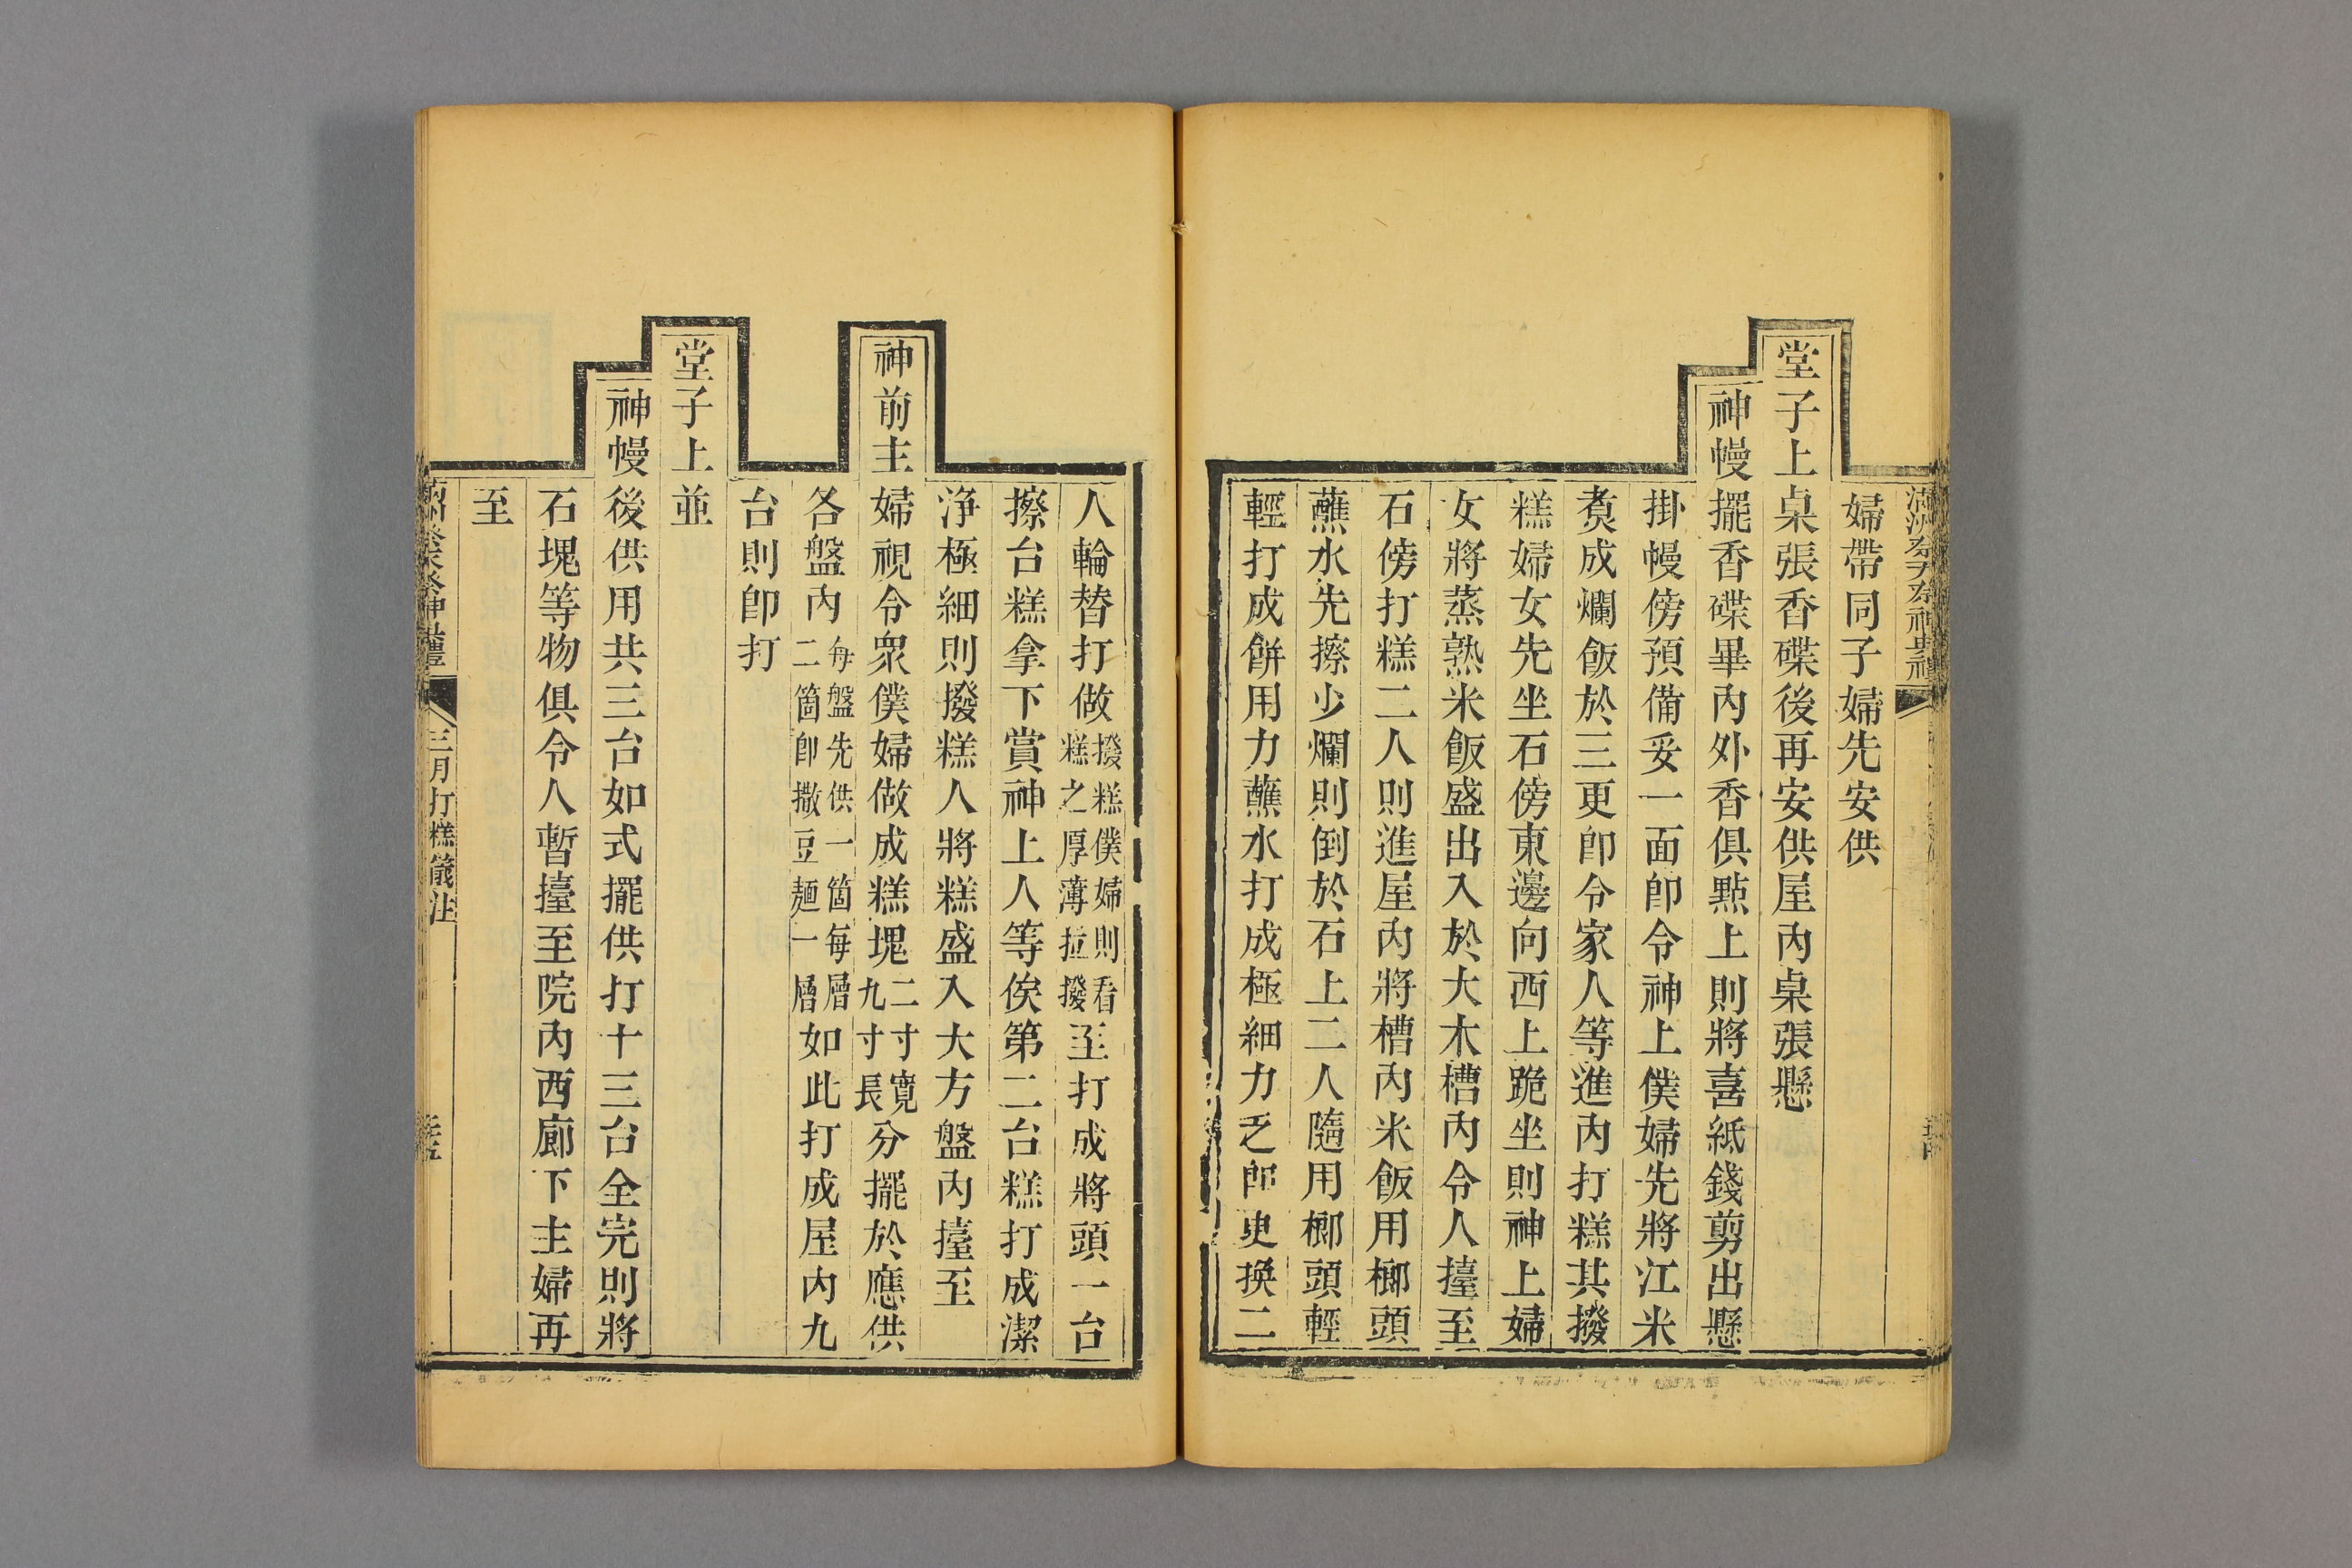 婦帶同子婦先安供
堂子上桌張香碟後再安供屋內桌張懸
神幔擺香碟畢內外香俱㸃上則將喜紙錢剪出懸
掛幔傍預備妥一面即令神上僕婦先將江米
煑成爛飯於三更即令家人等進內打糕其撥
糕婦女先坐石傍東邊向西上跪坐則神上婦
女將蒸熟米飯盛出入於大木槽內令人擡至
石傍打糕二人則進屋內將槽內米飯用榔頭
蘸水先擦少爛則倒於石上二人隨用榔頭輕
輕打成餅用力蘸水打成極細力乏即更換二
人輪替打做撥糕僕婦則看糕之厚薄拉撥至打成將頭一台
擦台糕拿下賞神上人等俟第二台糕打成潔
浄極細則撥糕人將糕盛入大方盤內擡至
神前主婦視令衆僕婦做成糕塊二寸寬九寸長分擺於應供
各盤內每盤先供一箇每層二箇即撒豆麵一層如此打成屋內九
台則即打
堂子上並
神幔後供用共三台如式擺供打十三台全完則將
石塊等物俱令人暫擡至院內西廊下主婦再
至
三月打糕儀注